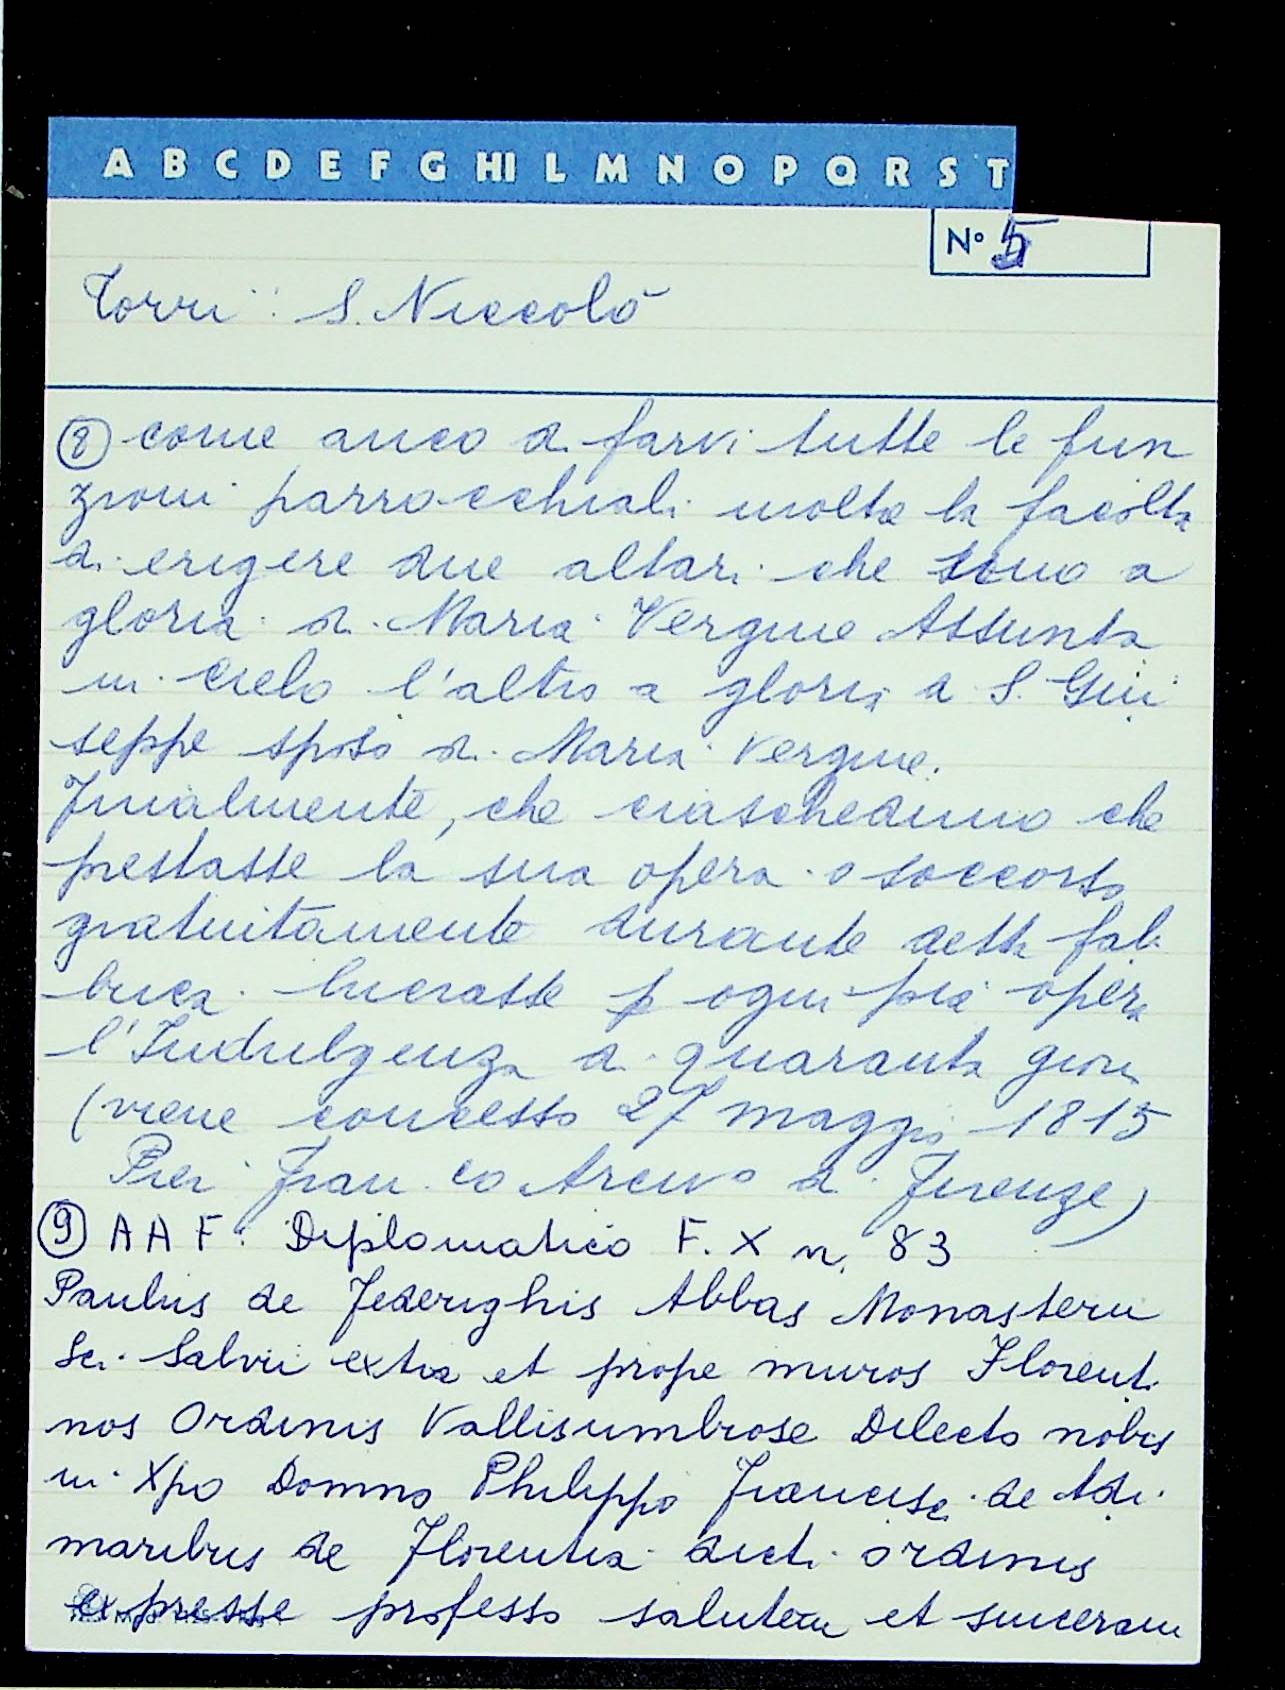 A B C D E F G HI L M N O P Q R S T
N° 5
Torri: S. Niccolò
(8) come anco di farvi tutte le fun
zioni parrocchiali inoltre la facolta
di erigere due altari che sono a
gloria di Maria Vergine Assunta
in Cielo l'altro a gloria a S. Giu
seppe sposo di Maria Vergine.
Finalmente, che ciascheduno che
prestasse la sua opera o soccorso
gratuitamente durante detta fab
brica lucrasse p ogni pia opera
l'Indulgenza di quaranta giorni
(viene concesso 27 maggio 1815
Pier Fran.co Arcivo di Firenze)
(9) AAF. Diplomatico F. X n. 83
Paulus de Federighis Abbas Monasterii
Sci. Salvii extra et prope muros Florenti
nos Ordinis Vallisumbrose Dilecto nobis
in Xpo Domno Philippo Francisc. de Adi
maribus de Florentia dicti ordinis
expresse professo salutem et sinceram